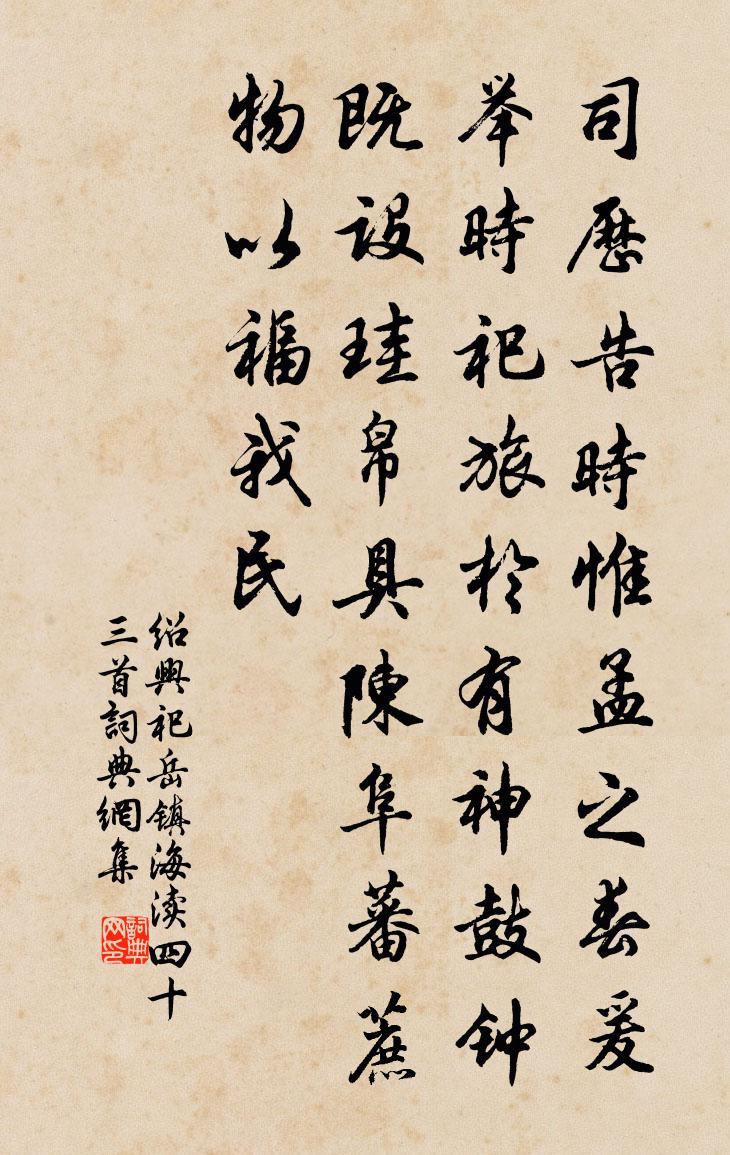 司歷告時惟孟之春爰
举時祀旅於有神鼓钟
既設珪帛具陳阜蕃蔗
物以福我民
绍興祀岳镇海渎四十
三首詞典網集
詞典网印